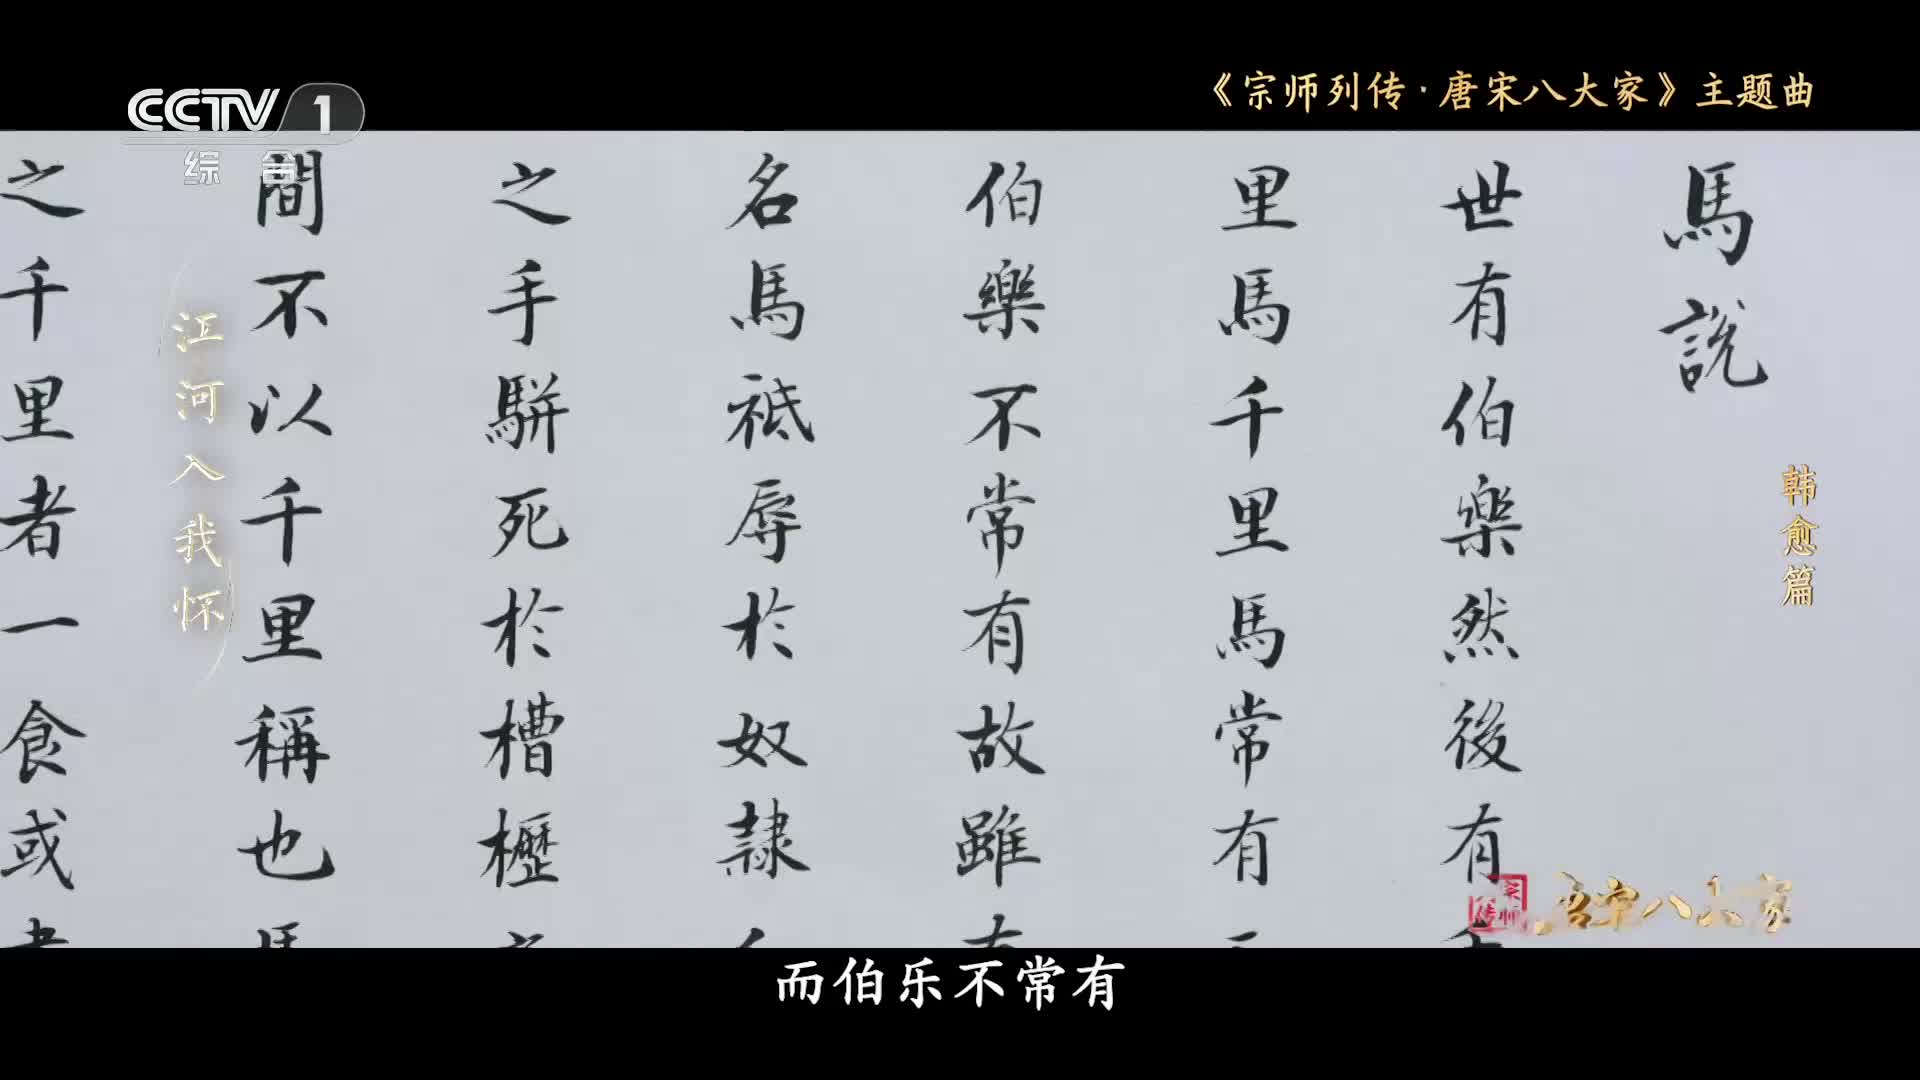 CCTV 1
综合
《宗师列传·唐宋八大家》主题曲
馬說
世有伯樂然後有
里馬千里馬常有
伯樂不常有故雖
名馬祗辱於奴隸
之手駢死於槽櫪
間不以千里稱也
之千里者一食或
韩愈篇
江河入我怀
宗师列传
唐宋八大家
而伯乐不常有